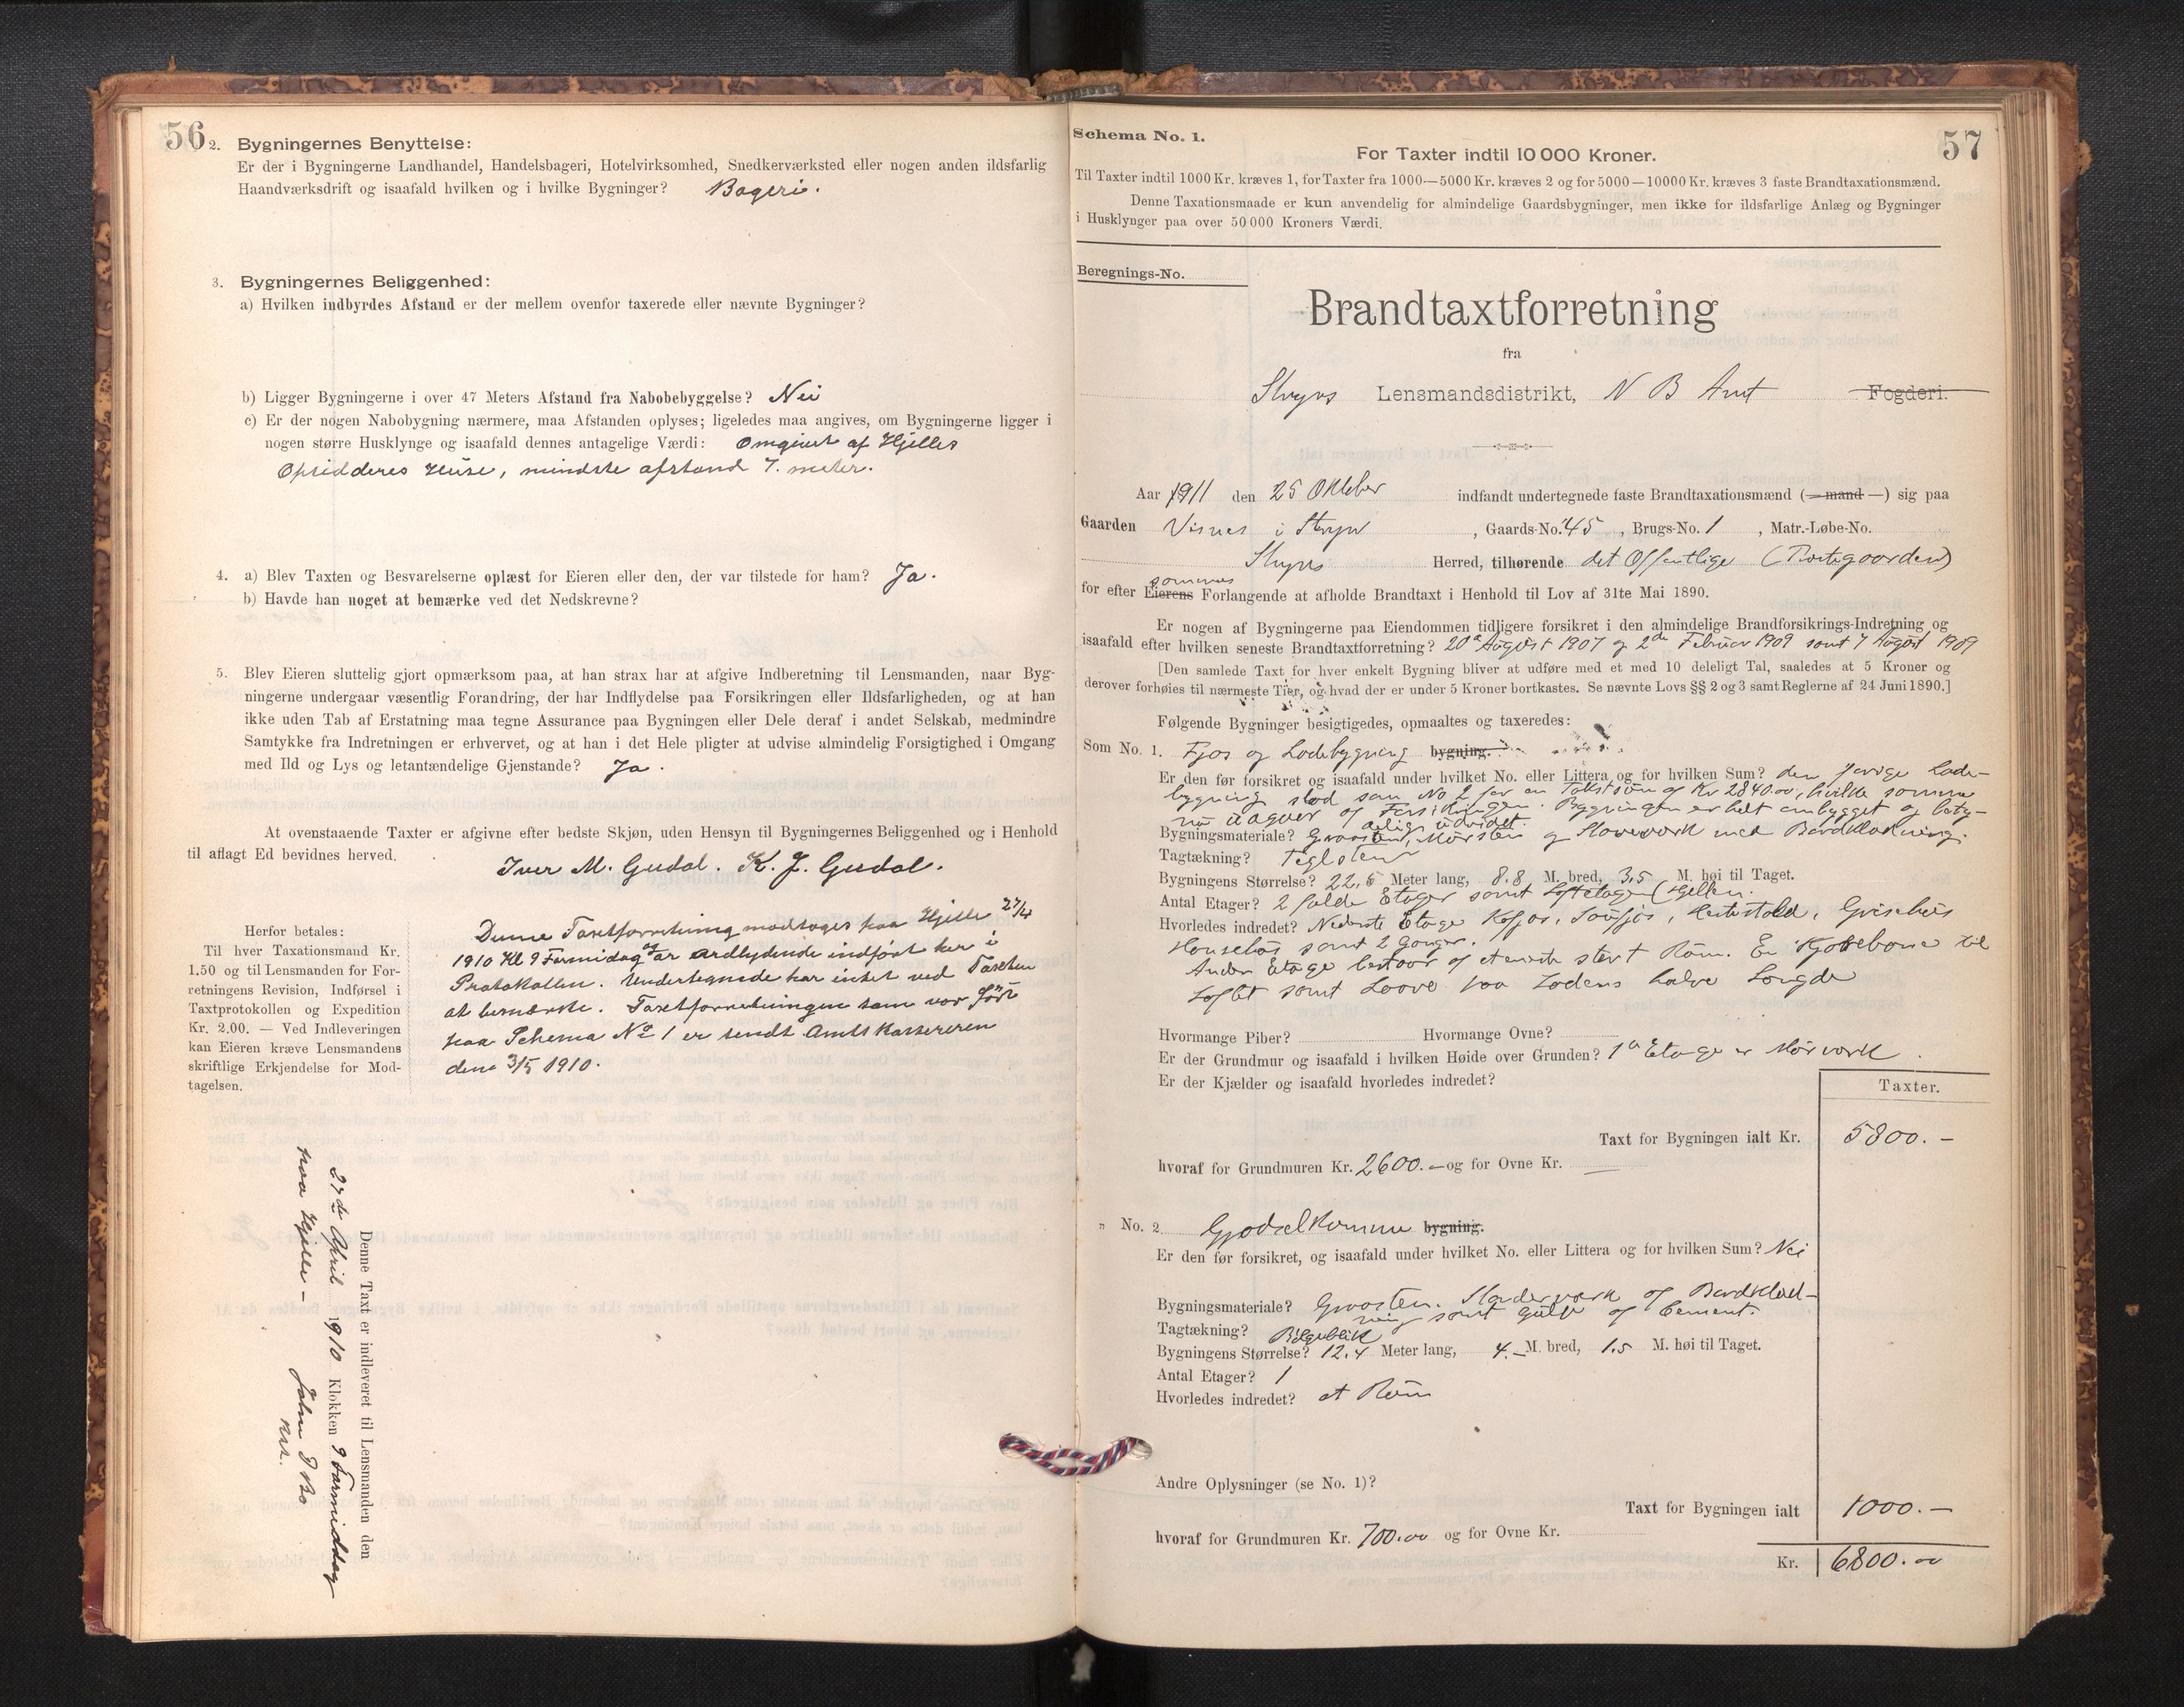 56
2. Bygningernes Benyttelse:
Er der i Bygningerne Landhandel, Handelsbageri, Hotelvirksomhed, Snedkerværksted eller nogen anden ildsfarlig
Haandværksdrift og isaafald hvilken og i hvilke Bygninger? Bageri.
3. Bygningernes Beliggenhed:
a) Hvilken indbyrdes Afstand er der mellem ovenfor taxerede eller nævnte Bygninger?
b) Ligger Bygningerne i over 47 Meters Afstand fra Nabobebyggelse? Nei
c) Er der nogen Nabobygning nærmere, maa Afstanden oplyses; ligeledes maa angives, om Bygningerne ligger i
nogen større Husklynge og isaafald dennes antagelige Værdi: Omgivet af Hjelles
Opsidderes Huse, mindste afstand 7. meter.
4. a) Blev Taxten og Besvarelserne oplæst for Eieren eller den, der var tilstede for ham? Ja.
b) Havde han noget at bemærke ved det Nedskrevne?
5. Blev Eieren sluttelig gjort opmærksom paa, at han strax har at afgive Indberetning til Lensmanden, naar Byg-
ningerne undergaar væsentlig Forandring, der har Indflydelse paa Forsikringen eller Ildsfarligheden, og at han
ikke uden Tab af Erstatning maa tegne Assurance paa Bygningen eller Dele deraf i andet Selskab, medmindre
Samtykke fra Indretningen er erhvervet, og at han i det Hele pligter at udvise almindelig Forsigtighed i Omgang
med Ild og Lys og letantændelige Gjenstande? Ja.
At ovenstaaende Taxter er afgivne efter bedste Skjøn, uden Hensyn til Bygningernes Beliggenhed og i Henhold
til aflagt Ed bevidnes herved.
Iver M. Gudal. K. J. Gudal.
Herfor betales:
Til hver Taxationsmand Kr.
1.50 og til Lensmanden for For-
retningens Revision, Indførsel i
Taxtprotokollen og Expedition
Kr. 2.00. — Ved Indleveringen
kan Eieren kræve Lensmandens
skriftlige Erkjendelse for Mod-
tagelsen.
Denne Taxtforretning modtoges paa Hjelle 27/4
1910 Kl 9 Formidag og er ordlydende indført her i
Protokollen. Undertegnede har intet ved Taxten
at bemærke. Taxtforretningen som var ført
paa Schema No 1 er sendt Amtskassereren
den 3/5 1910.
Denne Taxt er indleveret til Lensmanden den
27de April 1910 Klokken 9 Formiddag
paa Hjelle –
57
Schema No. 1.
For Taxter indtil 10 000 Kroner.
Til Taxter indtil 1000 Kr. kræves 1, for Taxter fra 1000—5000 Kr. kræves 2 og for 5000—10000 Kr. kræves 3 faste Brandtaxationsmænd.
Denne Taxationsmaade er kun anvendelig for almindelige Gaardsbygninger, men ikke for ildsfarlige Anlæg og Bygninger
i Husklynger paa over 50 000 Kroners Værdi.
Beregnings-No.
Brandtaxtforretning
fra
Stryns Lensmandsdistrikt, N B Amt Fogderi.
Aar 1911 den 25 Oktober indfandt undertegnede faste Brandtaxationsmænd (—mand—) sig paa
Gaarden Visnes i Stryn, Gaards-No. 45, Brugs-No. 1, Matr.-Løbe-No.
Stryns Herred, tilhørende det Offentlige (Prestegaarden)
for efter Eierens sammes Forlangende at afholde Brandtaxt i Henhold til Lov af 31te Mai 1890.
Er nogen af Bygningerne paa Eiendommen tidligere forsikret i den almindelige Brandforsikrings-Indretning og
isaafald efter hvilken seneste Brandtaxtforretning? 20de August 1907 og 2de Februar 1909 samt 7 August 1909
[Den samlede Taxt for hver enkelt Bygning bliver at udføre med et med 10 deleligt Tal, saaledes at 5 Kroner og
derover forhøies til nærmeste Tier, og hvad der er under 5 Kroner bortkastes. Se nævnte Lovs §§ 2 og 3 samt Reglerne af 24 Juni 1890.]
Følgende Bygninger besigtigedes, opmaaltes og taxeredes:
Som No. 1. Fjos og Ladebygning bygning.
Er den før forsikret og isaafald under hvilket No. eller Littera og for hvilken Sum? den forrige Lade-
bygning stod som No 2 for en Takstsum af Kr 2840.00, hvilke somme
nu udgaar af Forsikringen. Bygningen er helt ombygget og bety-
delig udvidet.
Bygningsmateriale? Graasten, Mursten og Stavværk med Bordklædning.
Tagtækning? Teglsten
Bygningens Størrelse? 22.5 Meter lang, 8.8 M. bred, 3.5 M. høi til Taget.
Antal Etager? 2 fulde Etager samt Loftetage (Hjellen.
Hvorledes indredet? Nederste Etage Kofjos, Saufjos, Hestestald, Grisehus
Hønsehus samt 2 Ganger.
Anden Etage bestaar af et eneste stort Rum. En Kjørebane til
Loftet samt Laave paa Ladens halve Længde
Hvormange Piber? Hvormange Ovne?
Er der Grundmur og isaafald i hvilken Høide over Grunden? 1ste Etage er Murværk.
Er der Kjælder og isaafald hvorledes indredet?
Taxter.
Taxt for Bygningen ialt Kr. 5800.–
hvoraf for Grundmuren Kr. 2600.– og for Ovne Kr. —
" No. 2 Gjødselkumme bygning.
Er den før forsikret, og isaafald under hvilket No. eller Littera og for hvilken Sum? Nei
Bygningsmateriale? Graasten. Stenderværk og Bordklæd-
ning samt Gulv af Cement.
Tagtækning? Bølgeblik
Bygningens Størrelse? 12.4 Meter lang, 4.– M. bred, 1.5 M. høi til Taget.
Antal Etager? 1
Hvorledes indredet? et Rum
Andre Oplysninger (se No. 1)?
Taxt for Bygningen ialt 1000.–
hvoraf for Grundmuren Kr. 700.00 og for Ovne Kr.
Kr. 6800.00